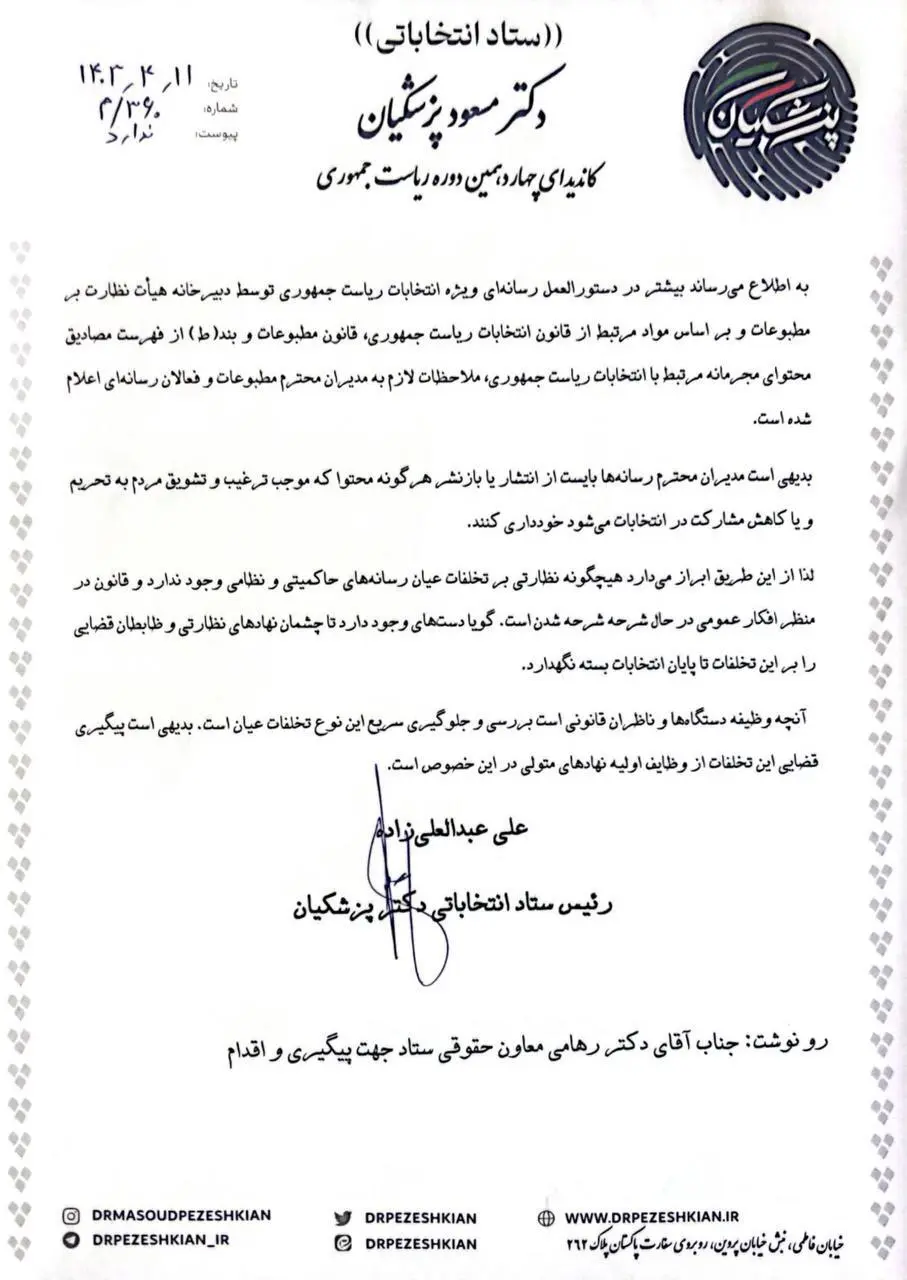 ((ستاد انتخاباتی))
دکتر مسعود پزشکیان
کاندیدای چهاردهمین دوره ریاست جمهوری
پزشکیان
تاریخ: ۱۴۰۳٫۴٫۱۱
شماره: ۳۶۰/م
پیوست: ندارد
به اطلاع می‌رساند بیشتر در دستورالعمل رسانه‌ای ویژه انتخابات ریاست جمهوری توسط دبیرخانه هیأت نظارت بر
مطبوعات و بر اساس مواد مرتبط از قانون انتخابات ریاست جمهوری، قانون مطبوعات و بند(ط) از فهرست مصادیق
محتوای مجرمانه مرتبط با انتخابات ریاست جمهوری، ملاحظات لازم به مدیران محترم مطبوعات و فعالان رسانه‌ای اعلام
شده است.
بدیهی است مدیران محترم رسانه‌ها بایست از انتشار یا بازنشر هرگونه محتوا که موجب ترغیب و تشویق مردم به تحریم
و یا کاهش مشارکت در انتخابات می‌شود خودداری کنند.
لذا از این طریق ابراز می‌دارد هیچگونه نظارتی بر تخلفات عیان رسانه‌های حاکمیتی و نظامی وجود ندارد و قانون در
منظر افکار عمومی در حال شرحه شرحه شدن است. گویا دست‌های وجود دارد تا چشمان نهادهای نظارتی و ظابطان قضایی
را بر این تخلفات تا پایان انتخابات بسته نگهدارد.
آنچه وظیفه دستگاه‌ها و ناظران قانونی است بررسی و جلوگیری سریع این نوع تخلفات عیان است. بدیهی است پیگیری
قضایی این تخلفات از وظایف اولیه نهادهای متولی در این خصوص است.
علی عبدالعلی‌زاده
رئیس ستاد انتخاباتی دکتر پزشکیان
رو نوشت: جناب آقای دکتر رهامی معاون حقوقی ستاد جهت پیگیری و اقدام
DRMASOUDPEZESHKIAN
DRPEZESHKIAN_IR
DRPEZESHKIAN
DRPEZESHKIAN
WWW.DRPEZESHKIAN.IR
خیابان فاطمی، نبش خیابان پروین، روبروی سفارت پاکستان پلاک ۲۶۲